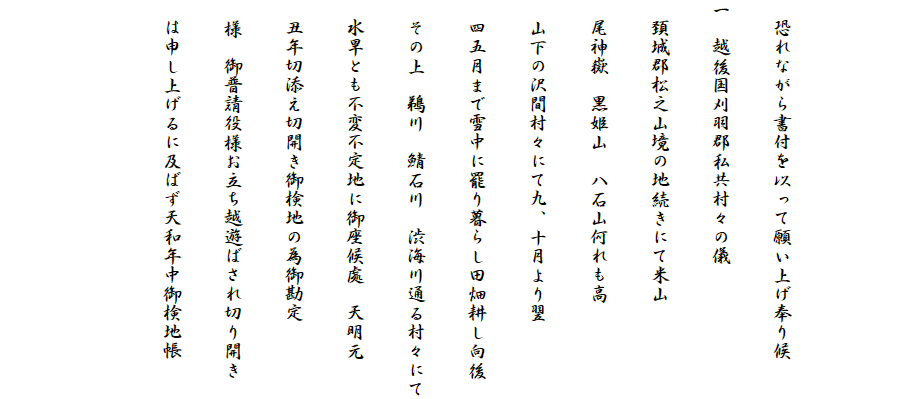 恐れながら書付を以って願い上げ奉り候
一　越後国刈羽郡私共村々の儀
頚城郡松之山境の地続きにて米山
尾神嶽　黒姫山　八石山何れも高
山下の沢間村々にて九、十月より翌
四五月まで雪中に罷り暮らし田畑耕し向後
その上　鵜川　鯖石川　渋海川通る村々にて
水旱とも不変不定地に御座候處　天明元
丑年切添え切開き御検地の為御勘定
様　御普請役様お立ち越遊ばされ切り開き
は申し上げるに及ばず天和年中御検地帳